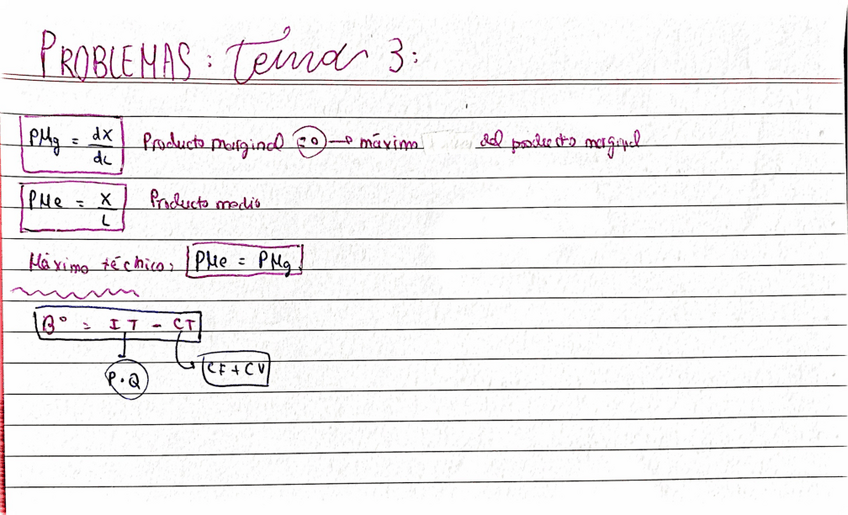 PROBLEMAS: Tema 3:
PMg = dX/dL Producto marginal =0 → máximo del producto marginal
PMe = X/L Producto medio
Máximo técnico, PMe = PMg
Bº = IT - CT
P.Q CF + CV